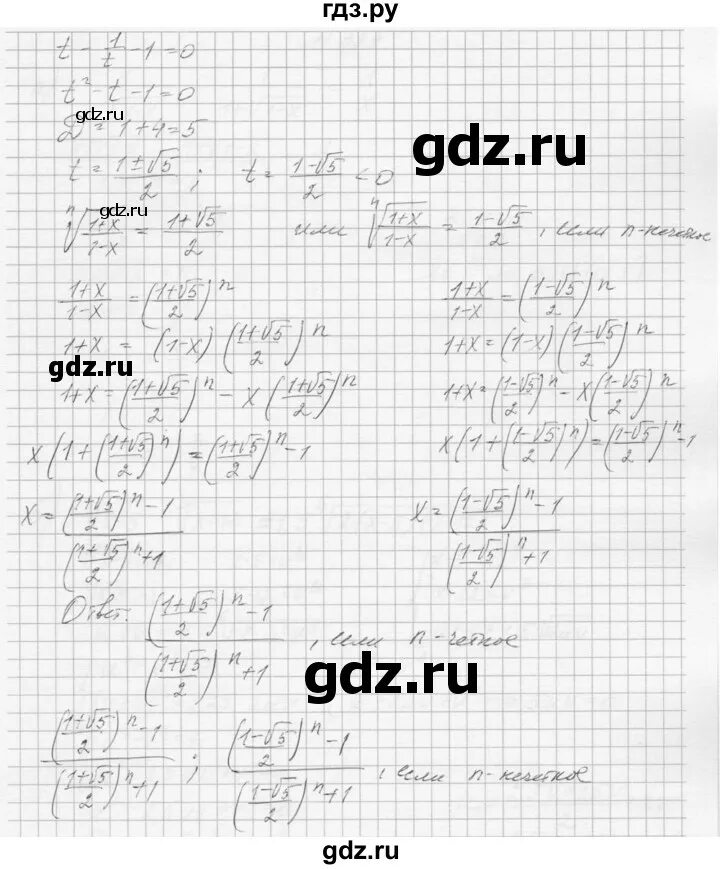 гдз.ру
t - 1/t - 1 = 0
t² - t - 1 = 0
gdz.ru
D = 1 + 4 = 5
gdz.ru
t = (1±√5)/2 ; t = (1-√5)/2 < 0
gdz.ru
ⁿ√((1+x)/(1-x)) = (1+√5)/2 или ⁿ√((1+x)/(1-x)) = (1-√5)/2 , если n-нечетное
(1+x)/(1-x) = ((1+√5)/2)ⁿ (1+x)/(1-x) = ((1-√5)/2)ⁿ
1+x = (1-x)((1+√5)/2)ⁿ 1+x = (1-x)((1-√5)/2)ⁿ
gdz.ru
1+x = ((1+√5)/2)ⁿ - x((1+√5)/2)ⁿ 1+x = ((1-√5)/2)ⁿ - x((1-√5)/2)ⁿ
x(1+((1+√5)/2)ⁿ) = ((1+√5)/2)ⁿ - 1 x(1+((1-√5)/2)ⁿ) = ((1-√5)/2)ⁿ - 1
x = (((1+√5)/2)ⁿ - 1)/(((1+√5)/2)ⁿ + 1) x = (((1-√5)/2)ⁿ - 1)/(((1-√5)/2)ⁿ + 1)
Ответ. (((1+√5)/2)ⁿ - 1)/(((1+√5)/2)ⁿ + 1) , если n-четное
gdz.ru
(((1+√5)/2)ⁿ - 1)/(((1+√5)/2)ⁿ + 1) ; (((1-√5)/2)ⁿ - 1)/(((1-√5)/2)ⁿ + 1) , если n-нечетное
gdz.ru